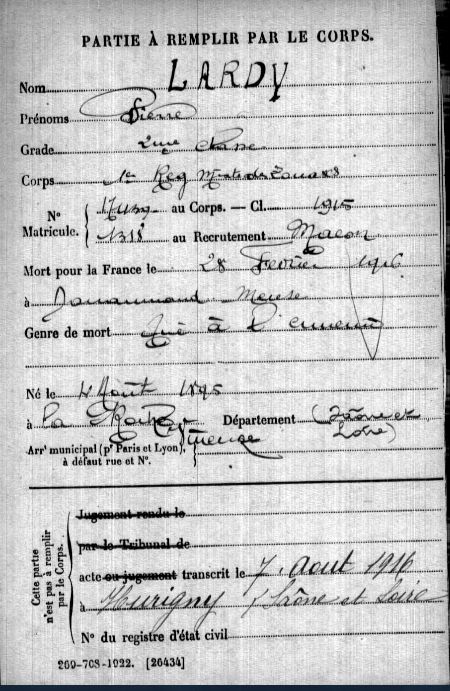 PARTIE À REMPLIR PAR LE CORPS.
Nom LARDY
Prénoms Pierre
Grade 2me classe
Corps 1er Reg Mte de Zouaves
N° Matricule. au Corps. — Cl. 1915
1318 au Recrutement Macon
Mort pour la France le 28 Fevrier 1916
à Douaumont Meuse
Genre de mort Tué à l'ennemi
Né le 4 Août 1895
à La Vineuse Département (Saône et Loire)
Arrt municipal (pr Paris et Lyon), à défaut rue et N°.
Cette partie n'est pas à remplir par le Corps.
Jugement rendu le
par le Tribunal de
acte ou jugement transcrit le 7 Aout 1916
à Hurigny (Saône et Loire
N° du registre d'état civil
269-708-1922. [26434]